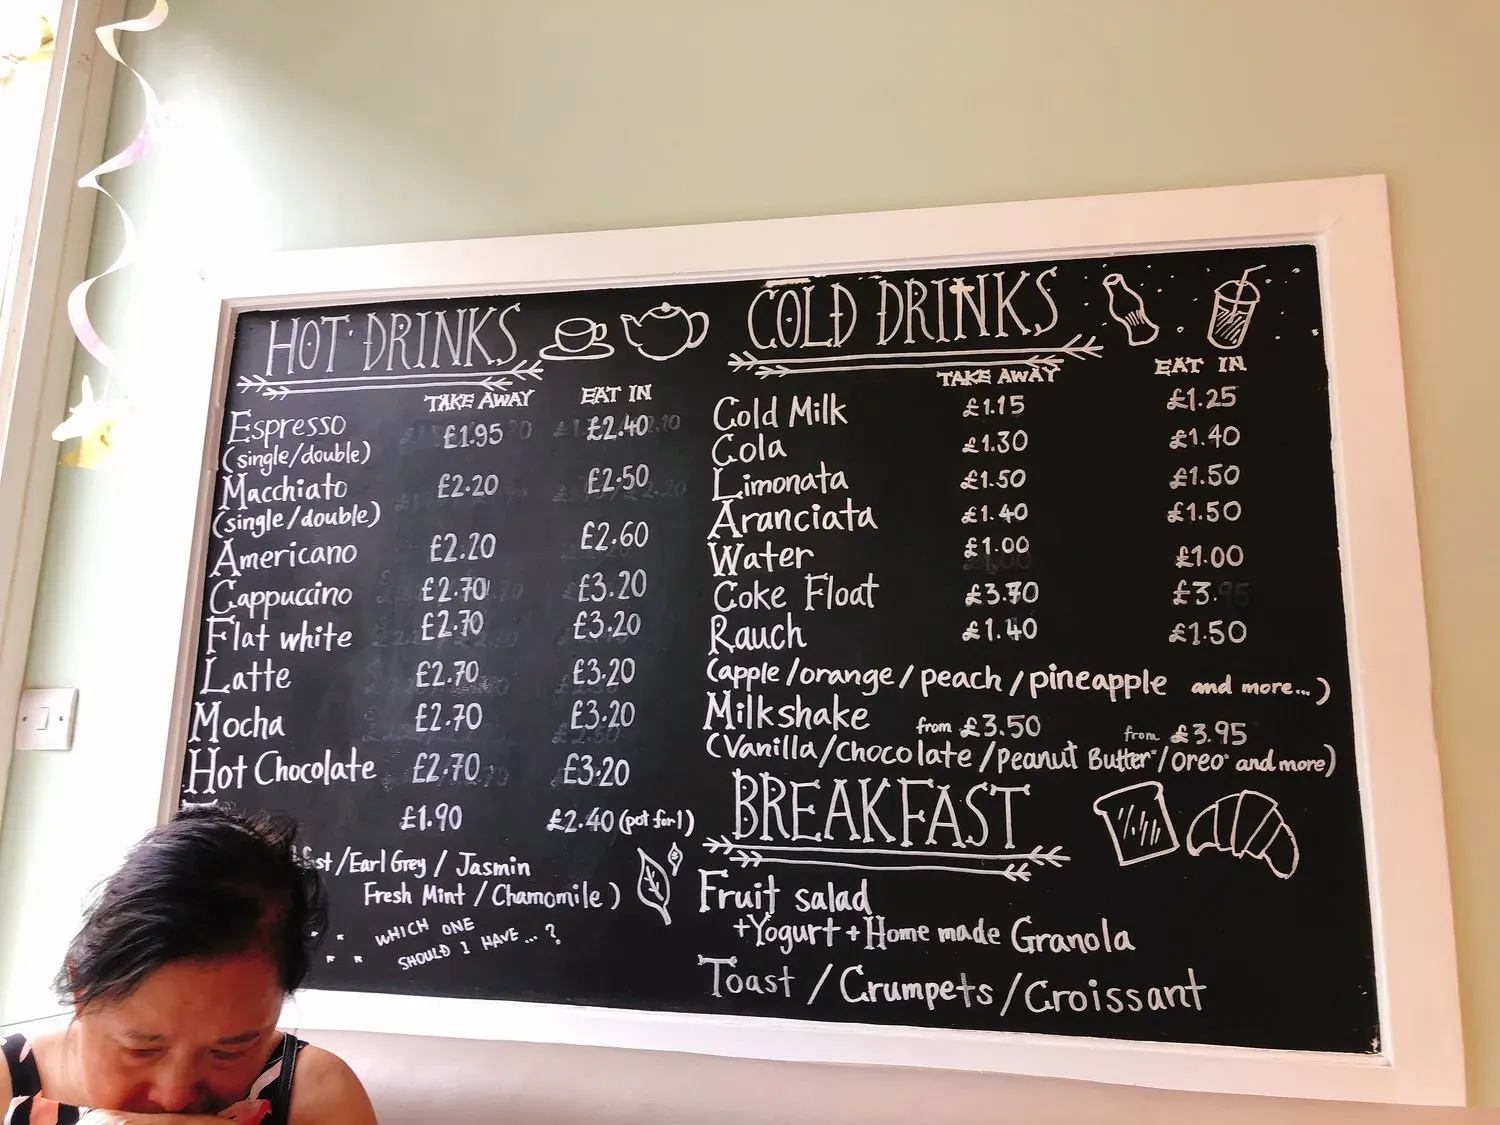 HOT DRINKS
TAKE AWAY EAT IN
Espresso £1.95 £2.40
(single/double)
Macchiato £2.20 £2.50
(single/double)
Americano £2.20 £2.60
Cappuccino £2.70 £3.20
Flat white £2.70 £3.20
Latte £2.70 £3.20
Mocha £2.70 £3.20
Hot Chocolate £2.70 £3.20
£1.90 £2.40 (pot for 1)
/Earl Grey / Jasmin
Fresh Mint / Chamomile )
WHICH ONE
SHOULD I HAVE ... ?
COLD DRINKS
TAKE AWAY EAT IN
Cold Milk £1.15 £1.25
Cola £1.30 £1.40
Limonata £1.50 £1.50
Aranciata £1.40 £1.50
Water £1.00 £1.00
Coke Float £3.70 £3.95
Rauch £1.40 £1.50
(apple/orange/peach/pineapple and more...)
Milkshake from £3.50 from £3.95
(Vanilla/chocolate/Peanut Butter/oreo and more)
BREAKFAST
Fruit salad
+Yogurt+Home made Granola
Toast / Crumpets / Croissant